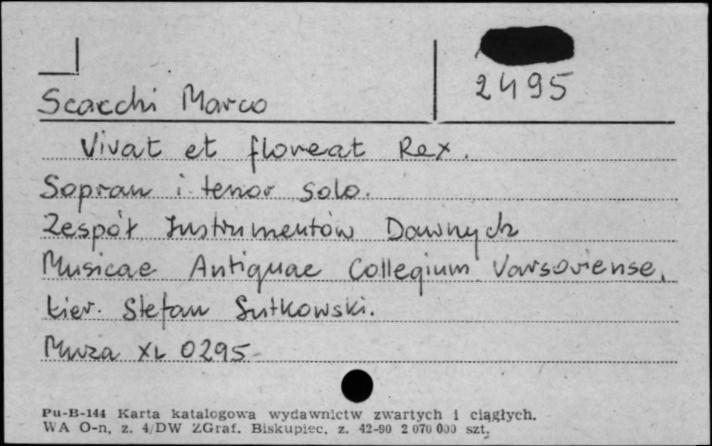 2495
Scacchi Marco
Vivat et floreat Rex.
Sopran i tenor solo.
Zespół Instrumentów Dawnych
Musicae Antiquae Collegium Varsoviense,
kier. Stefan Sutkowski.
Muza XL 0295
Pu-B-144 Karta katalogowa wydawnictw zwartych i ciągłych.
WA O-n, z. 4/DW ZGraf. Biskupiec, z. 42-90 2 070 000 szt.